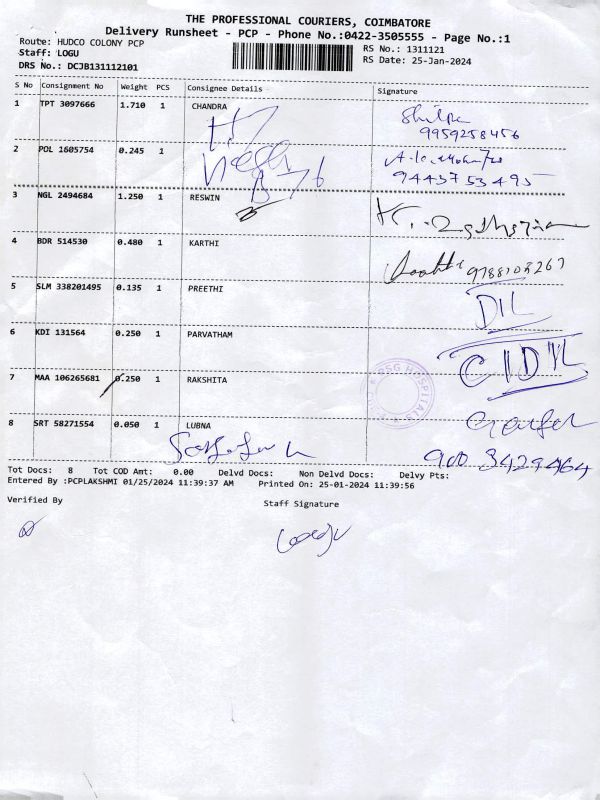 THE PROFESSIONAL COURIERS, COIMBATORE
Delivery Runsheet - PCP - Phone No.:0422-3505555 - Page No.:1
Route: HUDCO COLONY PCP
Staff: LOGU
DRS No.: DCJB131112101
RS No.: 1311121
RS Date: 25-Jan-2024
S No Consignment No Weight PCS Consignee Details Signature
1 TPT 3097666 1.710 1 CHANDRA
Shilpa
9959258456
2 POL 1605754 0.245 1
9443753495
3 NGL 2494684 1.250 1 RESWIN
4 BDR 514530 0.480 1 KARTHI
9788103267
5 SLM 338201495 0.135 1 PREETHI
DIL
6 KDI 131564 0.250 1 PARVATHAM
7 MAA 106265681 0.250 1 RAKSHITA
PSG HOSPITALS
8 SRT 58271554 0.050 1 LUBNA
900 3429464
Tot Docs: 8 Tot COD Amt: 0.00 Delvd Docs: Non Delvd Docs: Delvy Pts:
Entered By :PCPLAKSHMI 01/25/2024 11:39:37 AM Printed On: 25-01-2024 11:39:56
Verified By Staff Signature